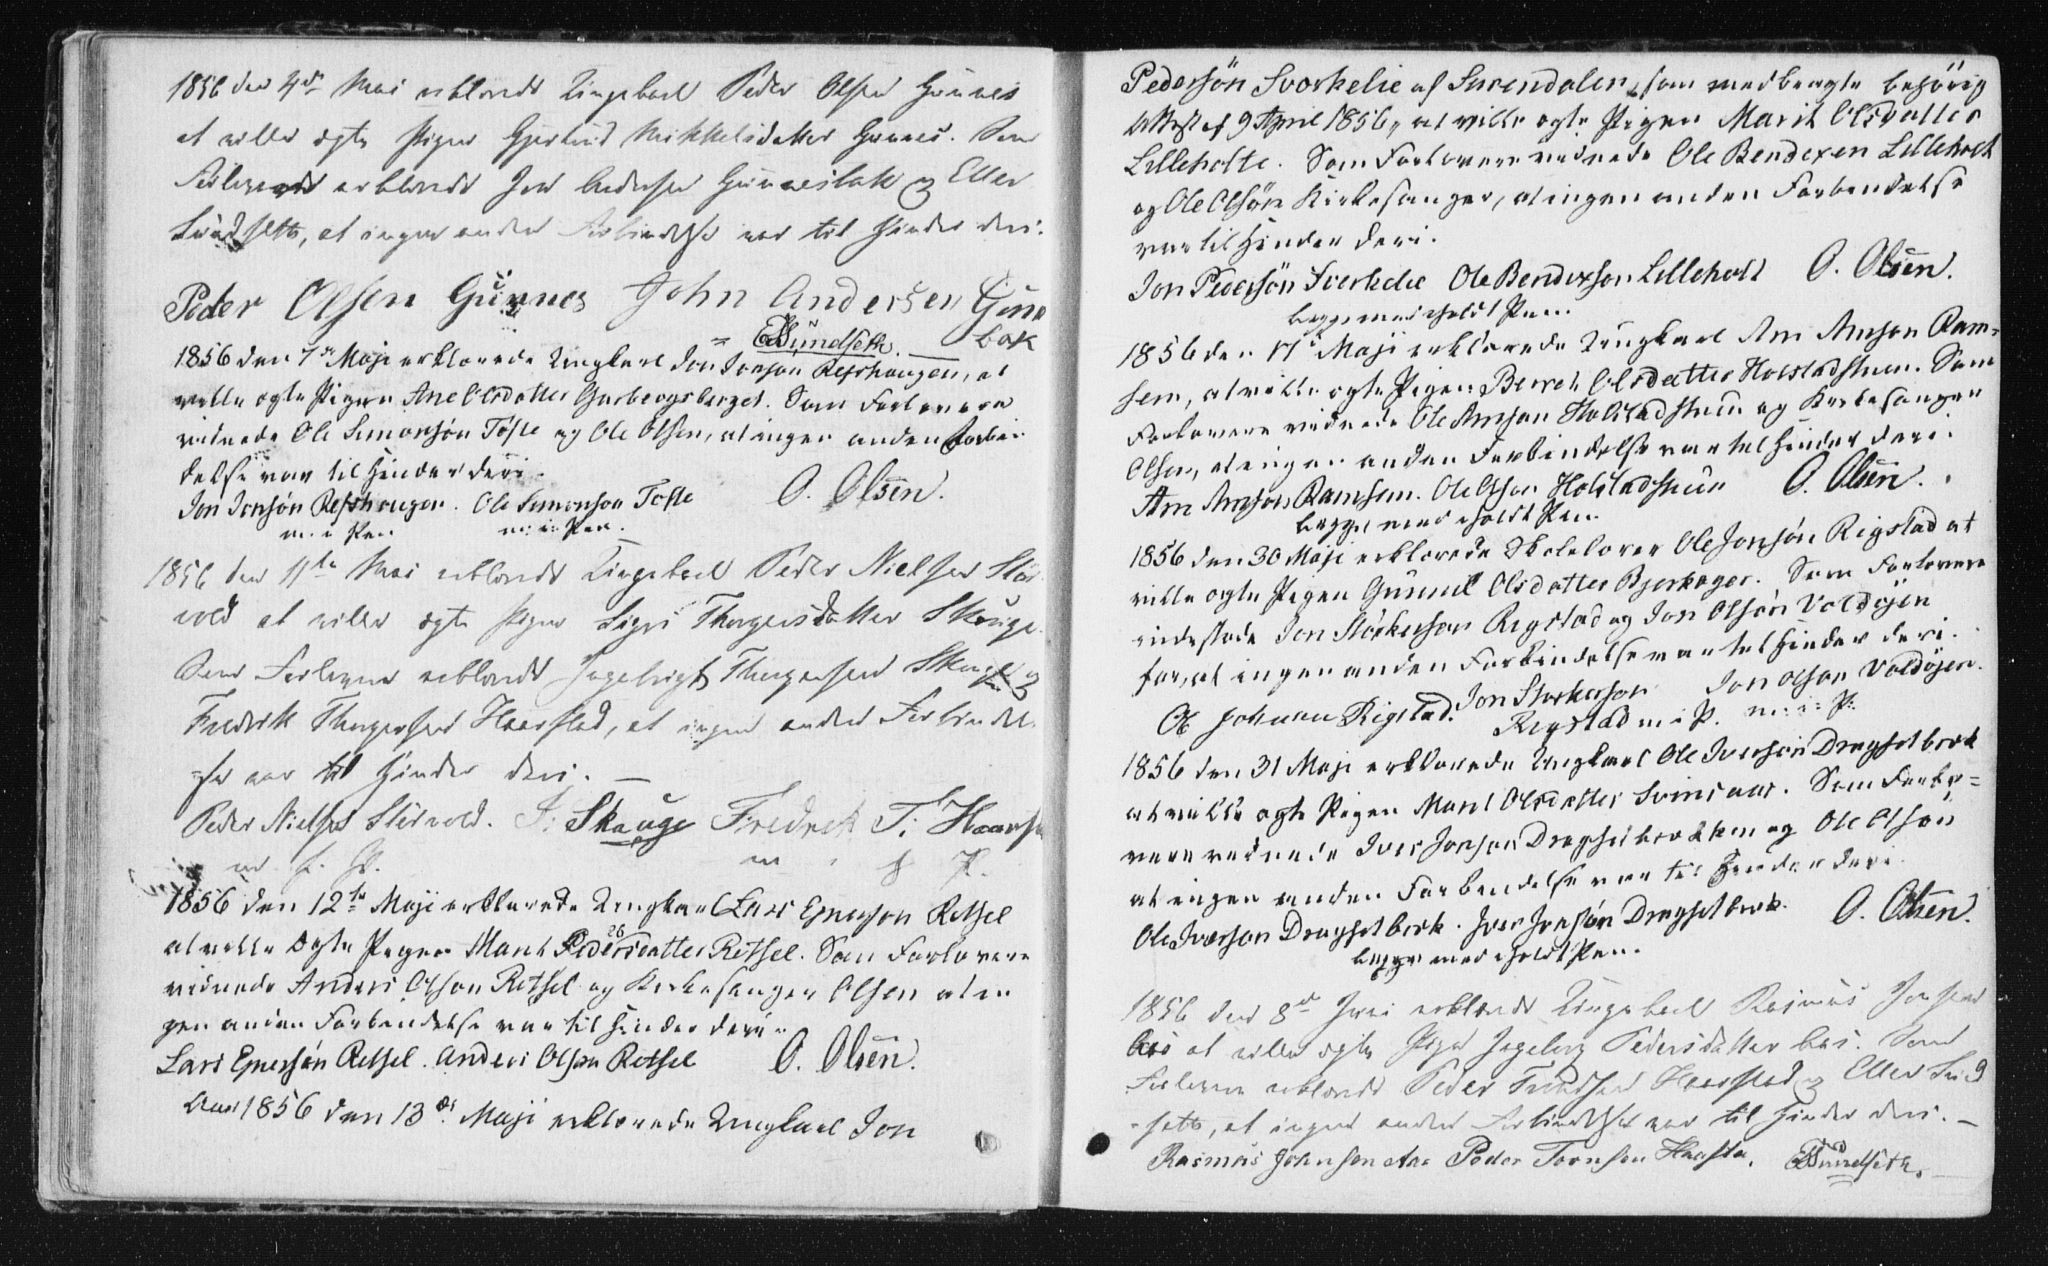 1856 den 4de Mai erklærede Ungekarl Peder Olsen Gunnes
at ville ægte Pigen Gjertrud Mikkelsdatter Gunnes. Som
Forlovere erklærede John Andersen Gunnesbak og Eller
Sundseth, at ingen anden Forbindelse var til Hinder deri.
Peder Olsen Gunnes John Andersen Gun
E Sundseth. bak
1856 den 7de Maji erklærede Ungkarl Jon Jonsøn Refshaugen, at
ville ægte Pigen Ane Olsdatter Garbergsberget. Som Forlovere
vidnede Ole Simonsøn Tofte og Ole Olsen, at ingen anden Forbin
delse var til Hinder deri.
Jon Jonsøn Refshaugen. Ole Simonsøn Tofte O. Olsen.
m. i. Pen m. i. Pen
1856 den 11te Mai erklærede Ungekarl Peder Nielsen Stør
vold at ville ægte Pigen Sigri Thorgersdatter Skauge.
Som Forlovere erklærede Ingebrigt Thorgersen Skauge og
Fredrik Thorgersen Haarstad, at ingen anden Forbindel
se var til Hinder deri.
Peder Nielsen Størvold. I. Skauge Fredrik T. Haarst
m. f. P. m. f. P.
1856 den 12te Maji erklærede Ungkarl Lars Ejnersøn Rethsel
at ville ægte Pigen Marit Pedersdatter 26 Rethsel. Som Forlovere
vidnede Anders Olson Rethsel og Kirkesanger Olsen at in
gen anden Forbindelse var til Hinder deri.
Lars Ejnersøn Retsel. Anders Olsen Rethsel O. Olsen.
Aar 1856 den 13de Maji erklærede Ungkarl Jon
Pedersøn Svorkelie af Surendalen, som medbragte behørig
Attest af 9 April 1856, at ville ægte Pigen Marit Olsdatter
Lilleholte. Som Forlovere vidnede Ole Bendixen Lilleholt
og Ole Olsøn Kirkesanger, at ingen anden Forbindelse
var til Hinder deri.
Jon Pedersøn Svorkelie Ole Bendixson Lilleholt O. Olsen.
begge med iholdt Pen.
1856 den 17de Maji erklærede Ungkarl Arn Arnson Ram-
sem, at ville ægte Pigen Beret Olsdatter Holstadstuen. Som
Forlovere vidnede Ole Arnson Holstadstuen og Kirkesanger
Olsen, at ingen anden Forbindelse var til Hinder deri.
Arn Arnson Ramsem. Ole Olson Holstadstuen O. Olsen.
begge med iholdt Pen.
1856 den 30 Maji erklærede Skolelærer Ole Jonsøn Rigstad at
ville ægte Pigen Gunnil Olsdatter Bjerkager. Som Forlovere
indestode Jon Størkerson Rigstad og Jon Olsøn Voldøjen
for, at ingen anden Forbindelse var til Hinder deri.
Ole Johnsen Rigstad. Jon Størkerson Jon Olson Voldøjen.
Rigstad m i P. m: i: P:
1856 den 31 Maji erklærede Ungkarl Ole Iversøn Dragsetberk
at ville ægte Pigen Marit Olsdatter Svinsaas. Som Forlo=
vere vidnede Iver Jonson Dragsetbrekken og Ole Olsøn
at ingen anden Forbindelse var til Hinder deri.
Ole Iverson Dragsetberk. Iver Jonsøn Dragsetberk. O. Olsen.
begge med iholdt Pen.
1856 den 8de Juni erklærede Ungekarl Rasmus Jonsen
Aas at ville ægte Pigen Ingeborg Pedersdatter Aas. Som
Forlovere erklærede Peder Haarstad og Eller Sund
seth, at ingen anden Forbindelse var til Hinder deri.
Rasmus Johnsen Aas Peder Haarsta. E Sundseth.